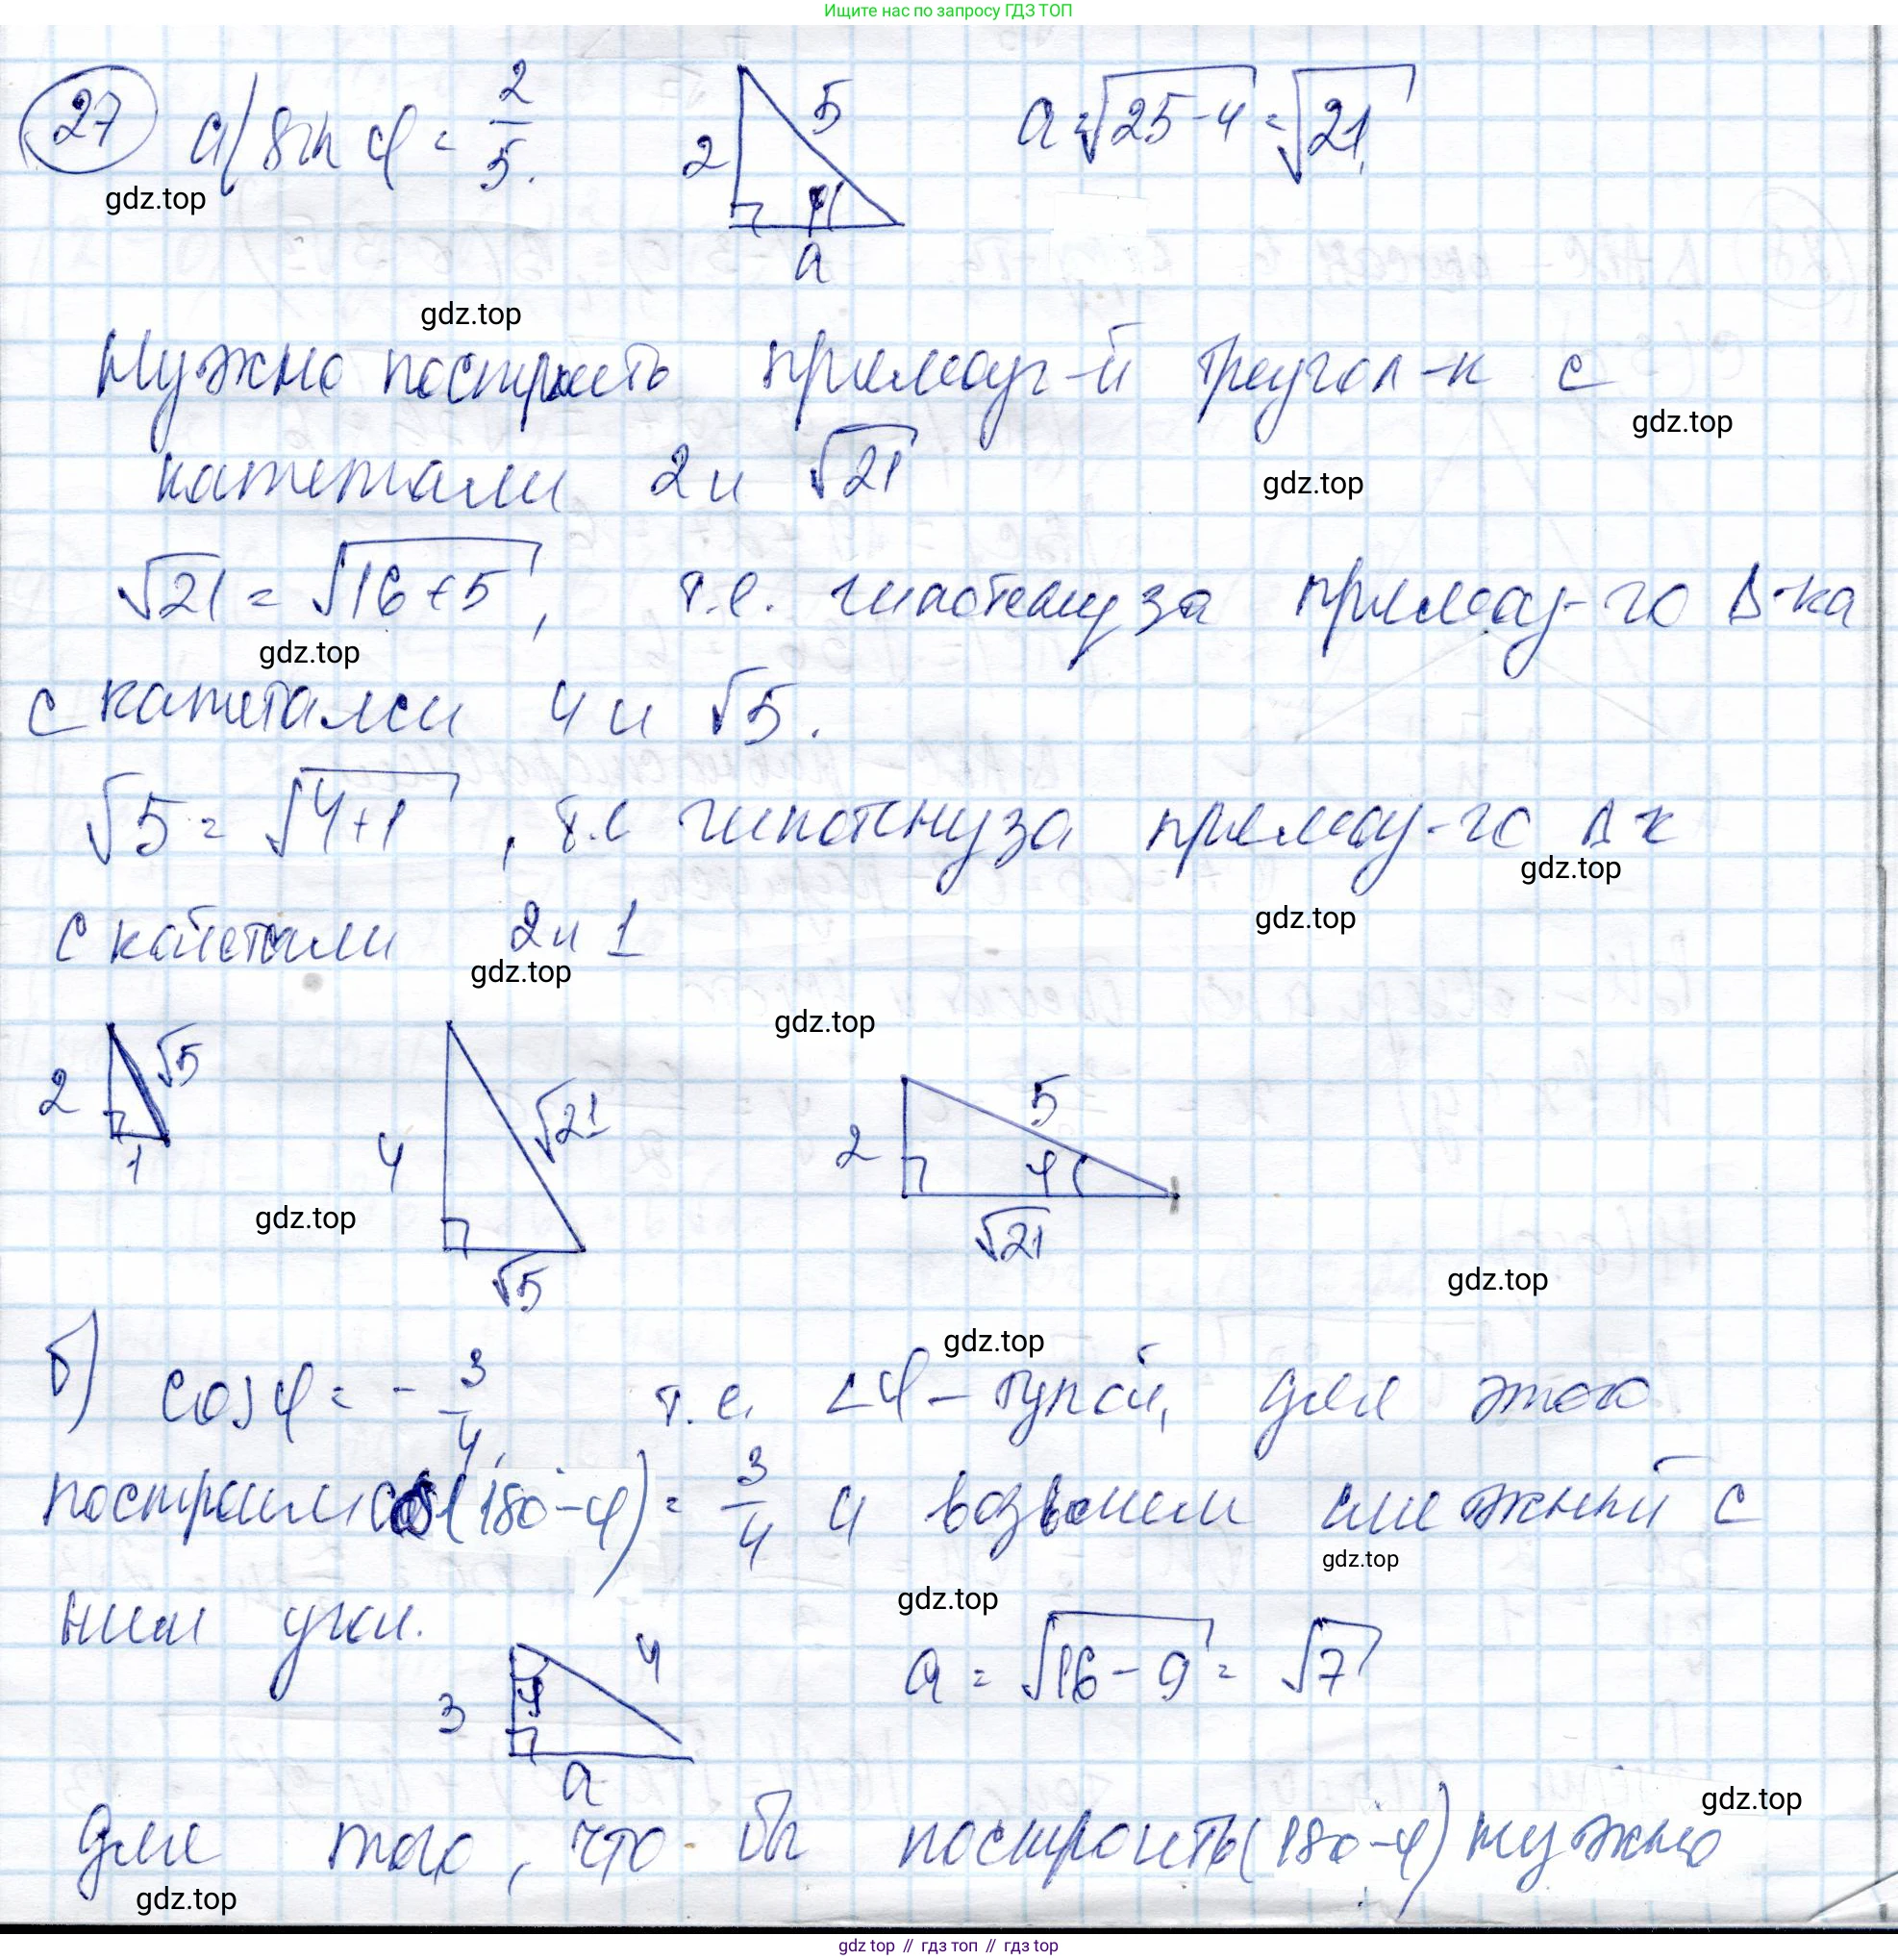 Ищите нас по запросу ГДЗ ТОП
27 а) sin φ = 2/5.
2 5 φ a
a = √25-4 = √21
gdz.top
gdz.top
Нужно построить прямоуг-й треугол-к с
gdz.top
катетами 2 и √21
gdz.top
√21 = √16+5, т.е. гипотенуза прямоу-го Δ-ка
gdz.top
с катетами 4 и √5.
√5 = √4+1, т.е гипотенуза прямоу-го Δ-к
gdz.top
с катетами 2 и 1
gdz.top
gdz.top
gdz.top
2 √5 1
4 √21 √5
2 5 φ √21
gdz.top
gdz.top
gdz.top
б) cos φ = - 3/4, т.е. ∠φ - тупой, для этого
построим cos(180°-φ) = 3/4 и возьмем смежный с
gdz.top
gdz.top
ним угол.
3 φ 4 a
a = √16-9 = √7
gdz.top
для того, что бы построить (180°-φ) нужно
gdz.top
gdz top // гдз топ // гдз top